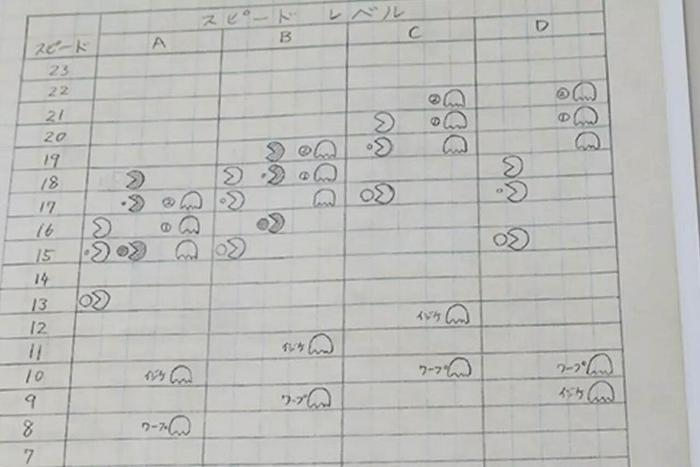 スピード レベル
スピード A B C D
23
22 ② ②
21 ① ①
20
19 ②
18 ①
17 ②
16 ①
15
14
13
12 イジケ
11 イジケ
10 イジケ ワープ ワープ
9 ワープ イジケ
8 ワープ
7